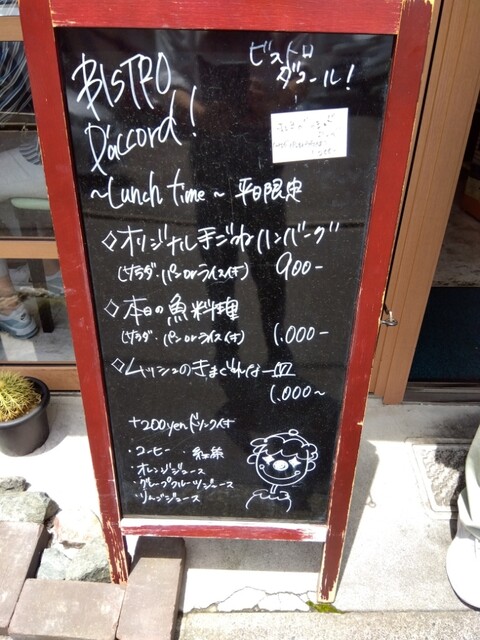 BISTRO
D'accord!
ビストロ
ダコール!
~Lunch time~ 平日限定
◇オリジナル手ごねハンバーグ
(サラダ・パンorライス付) 900-
◇本日の魚料理
(サラダ・パンorライス付) 1,000-
◇ムッシュのきまぐれな一皿
1,000~
+200yenドリンク付
・コーヒー ・紅茶
・オレンジジュース
・グレープフルーツジュース
・りんごジュース